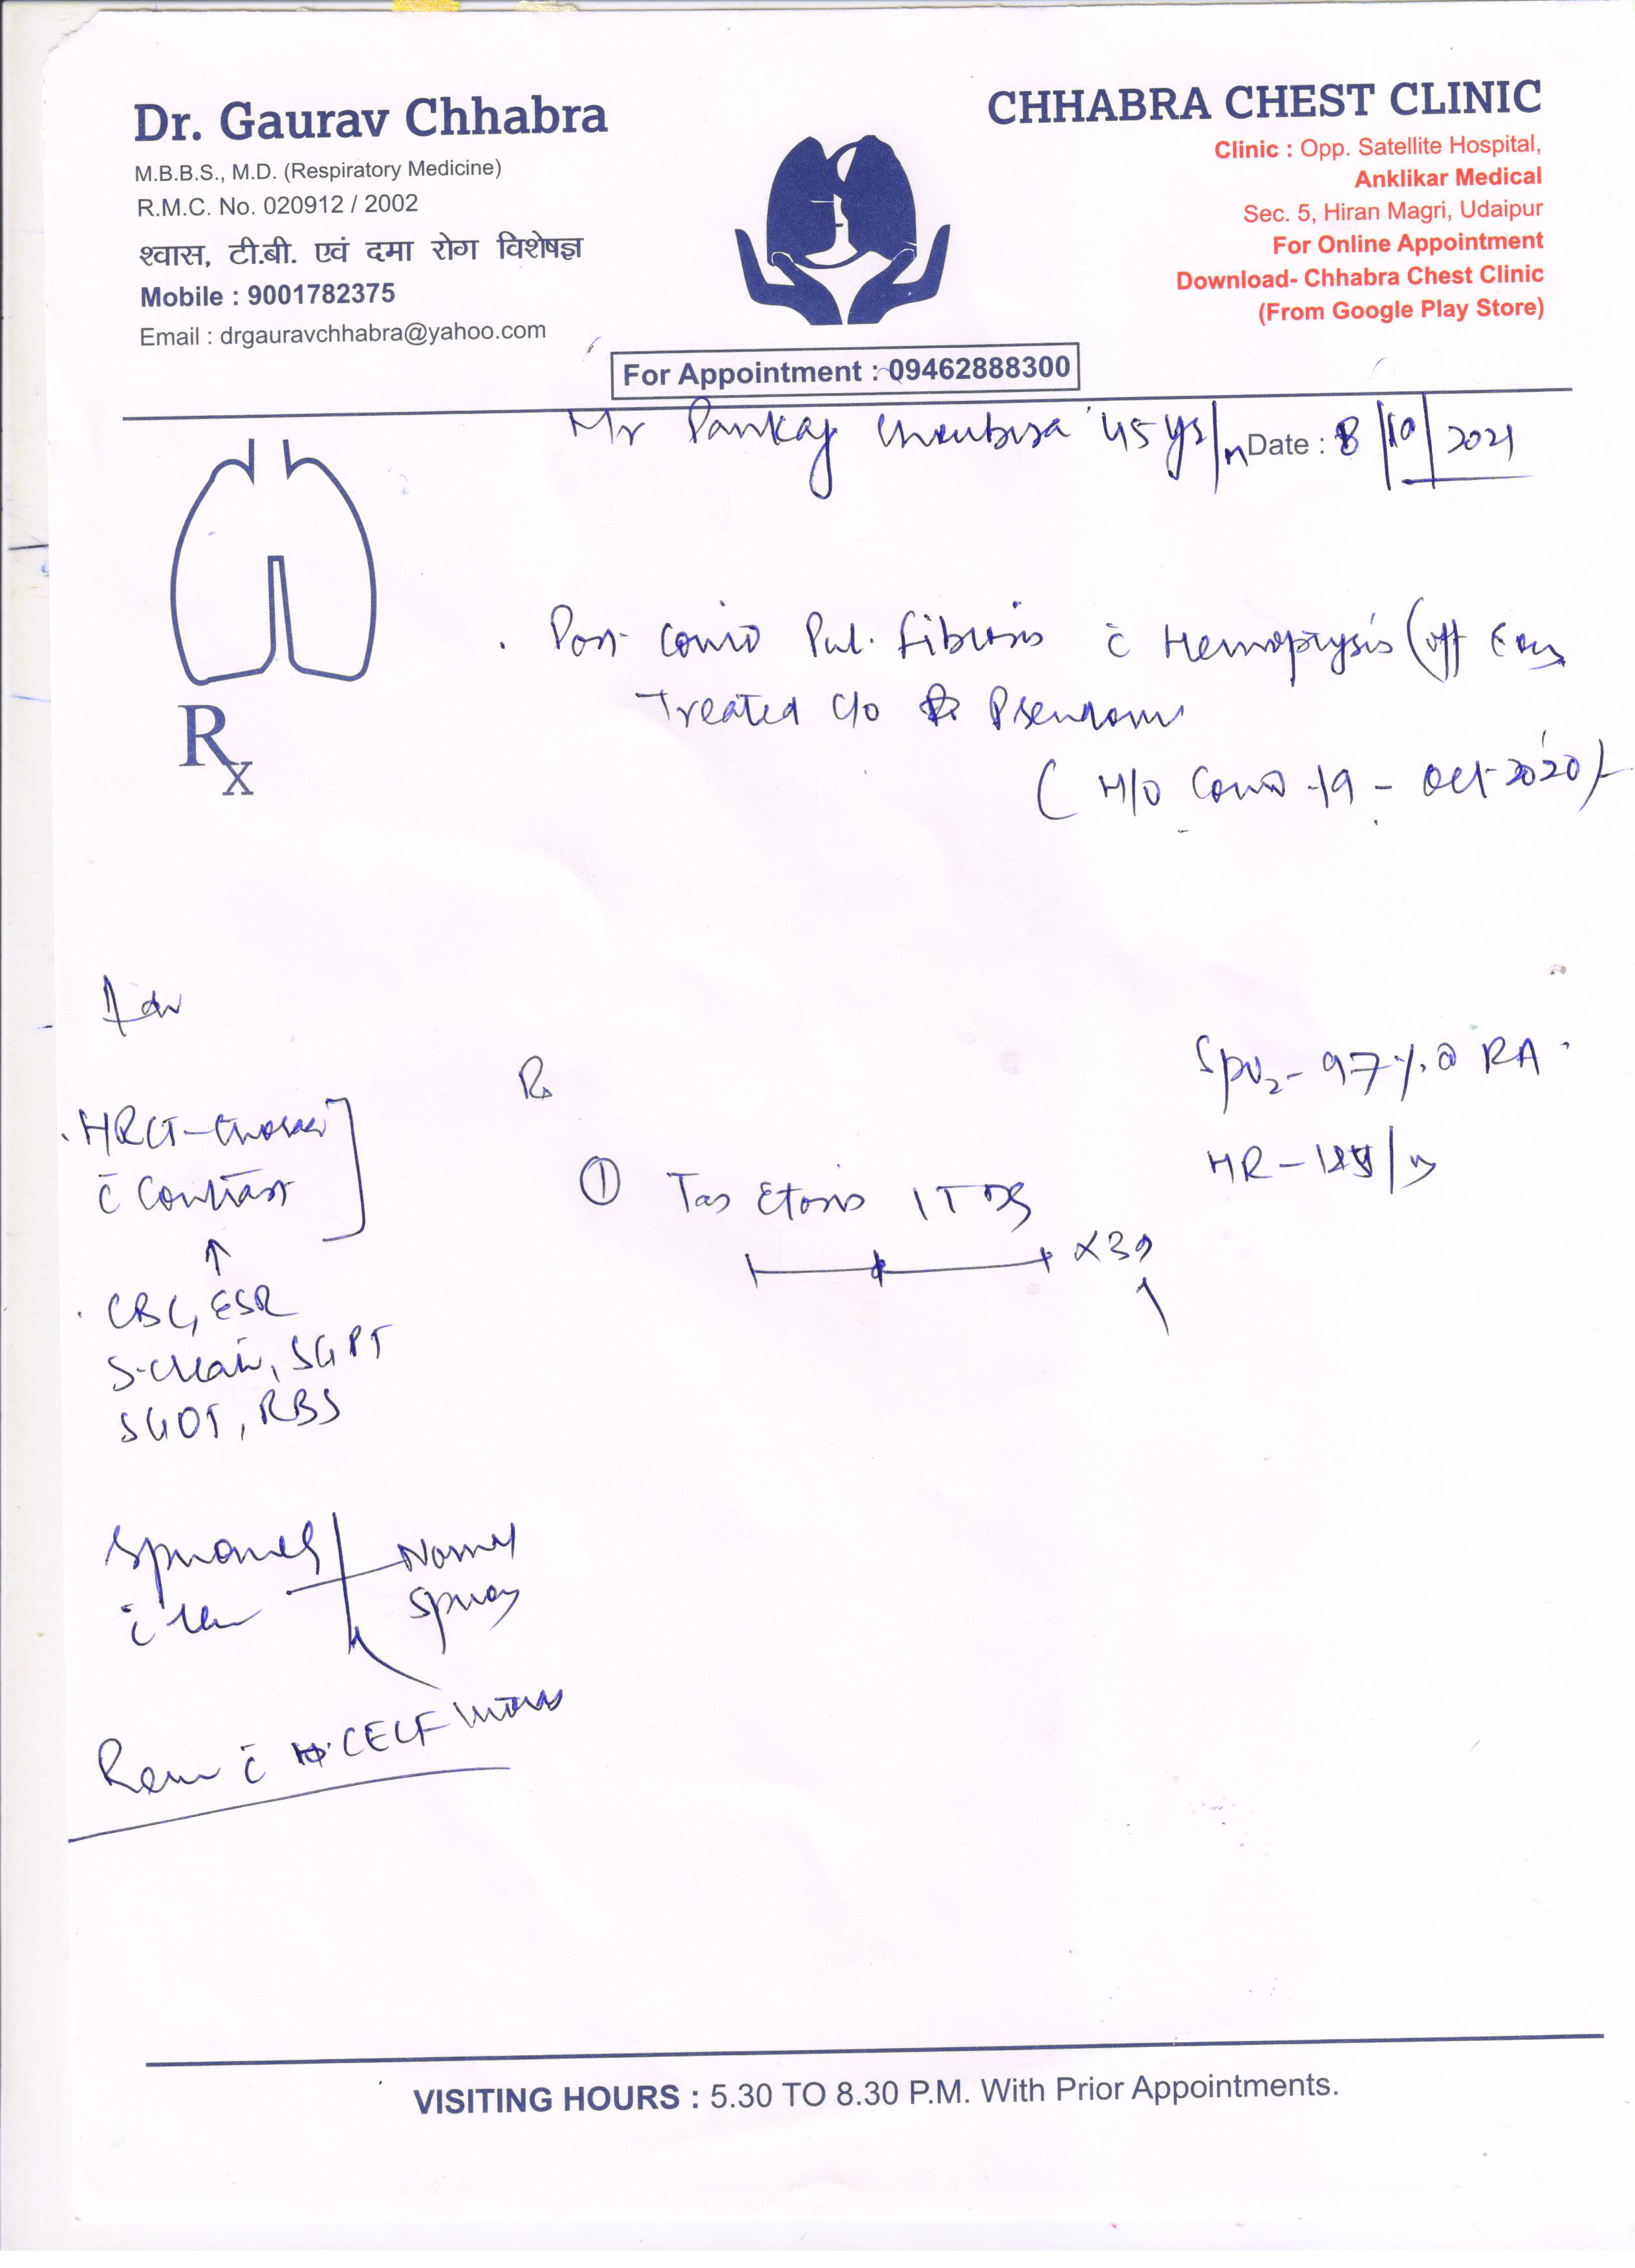 Dr. Gaurav Chhabra
M.B.B.S., M.D. (Respiratory Medicine)
R.M.C. No. 020912 / 2002
श्वास, टी.बी. एवं दमा रोग विशेषज्ञ
Mobile : 9001782375
Email : drgauravchhabra@yahoo.com
CHHABRA CHEST CLINIC
Clinic : Opp. Satellite Hospital,
Anklikar Medical
Sec. 5, Hiran Magri, Udaipur
For Online Appointment
Download- Chhabra Chest Clinic
(From Google Play Store)
For Appointment : 09462888300
Mr Pankaj 45 ys/m Date : 8/10/2021
Post Covid Pul. fibrosis c̄ Hemoptysis (off
Treated c/o
(H/O Covid-19 - Oct-2020)
Rx
Adv
SpO2 - 97% @ RA
HR -
HRCT-Thorax
c̄ Contrast
Rx
① Tab 1 T
CBC, ESR
S-creat, SGPT
SGOT, RBS
c̄
Spray
c̄
VISITING HOURS : 5.30 TO 8.30 P.M. With Prior Appointments.